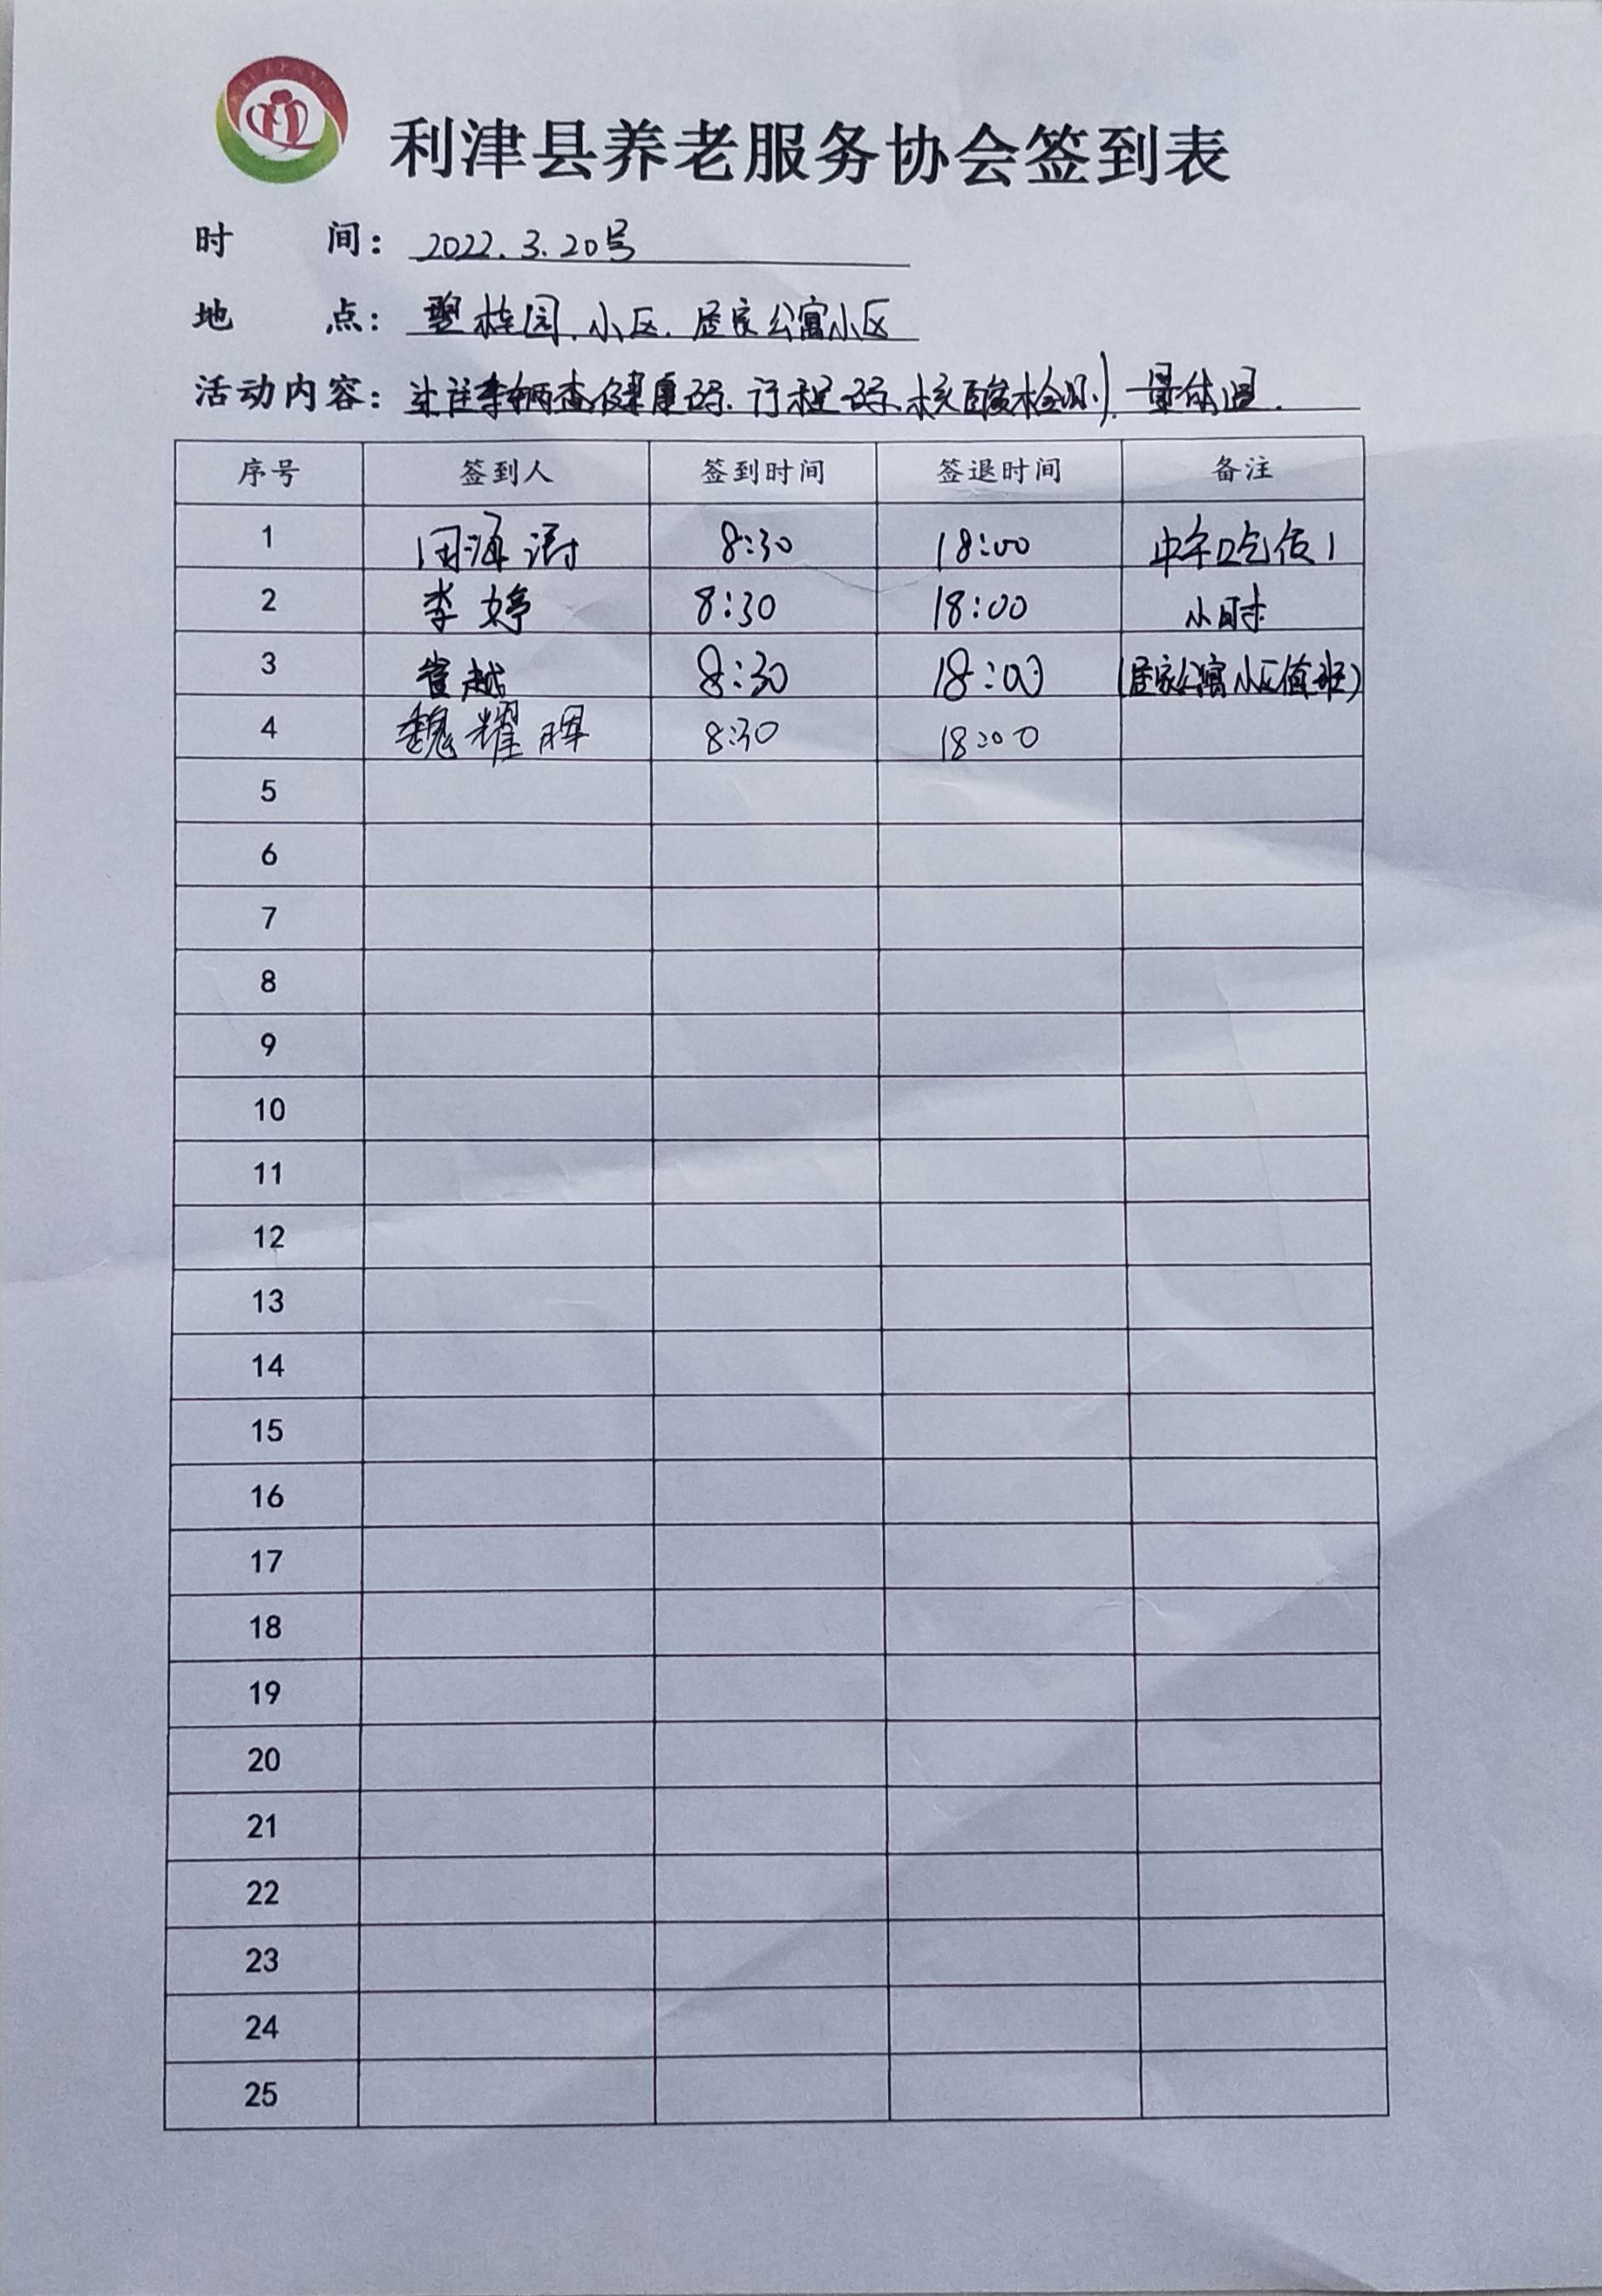 利津县养老服务协会签到表
时 间: 2022.3.20号
地 点: 碧桂园.小区.居家公寓小区
活动内容: 来往车辆查健康码.行程码.核酸检测.量体温.
序号 签到人 签到时间 签退时间 备注
1 周海涛 8:30 18:00 中午吃饭1
2 李婷 8:30 18:00 小时
3 崔越 8:30 18:00 (居家公寓小区值班)
4 魏耀晖 8:30 18:00
5
6
7
8
9
10
11
12
13
14
15
16
17
18
19
20
21
22
23
24
25